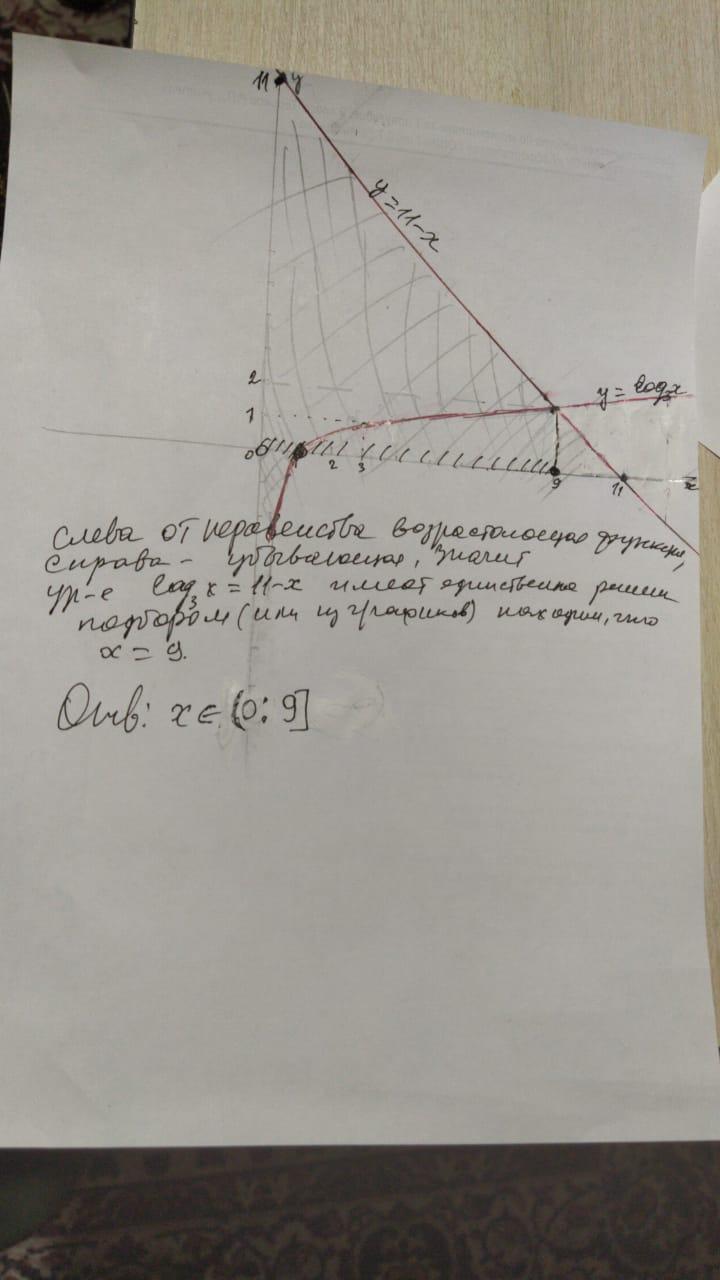 11 y
y = 11-x
2
y = log₃x
1
0 1 2 3 9 11 x
Слева от неравенства возрастающая функция,
справа - убывающая, значит
ур-е log₃x = 11-x имеет единственно решен
подбором (или из графиков) находим, что
x = 9.
Отв: x ∈ (0; 9]